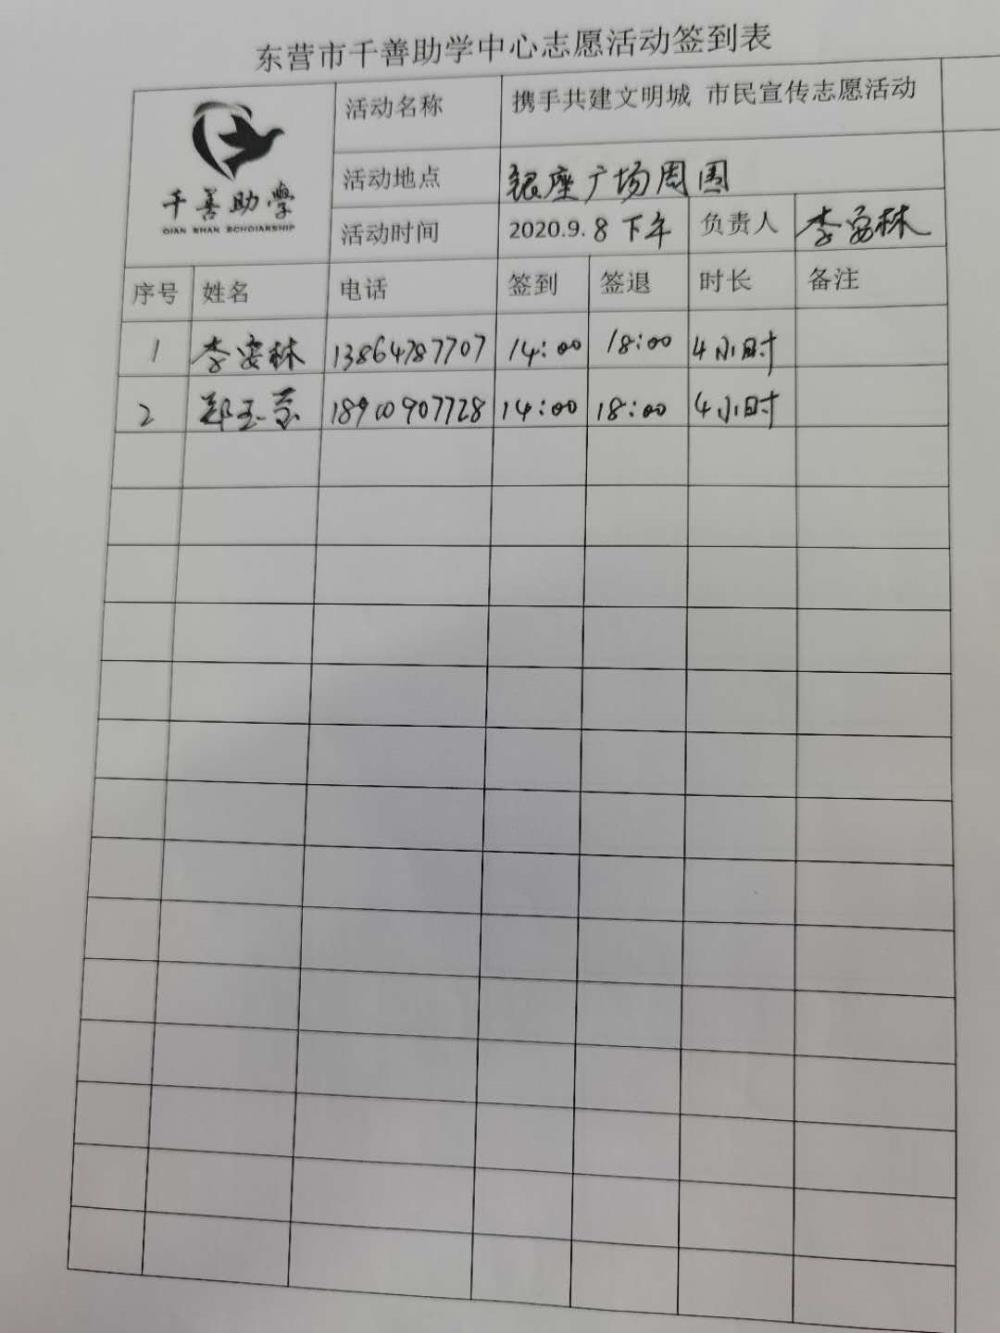 东营市千善助学中心志愿活动签到表
千善助学
QIAN SHAN SCHOIARSHIP
活动名称 携手共建文明城 市民宣传志愿活动
活动地点 银座广场周围
活动时间 2020.9.8下午 负责人 李安林
序号 姓名 电话 签到 签退 时长 备注
1 李安林 13864787707 14:00 18:00 4小时
2 郑玉 18900907728 14:00 18:00 4小时